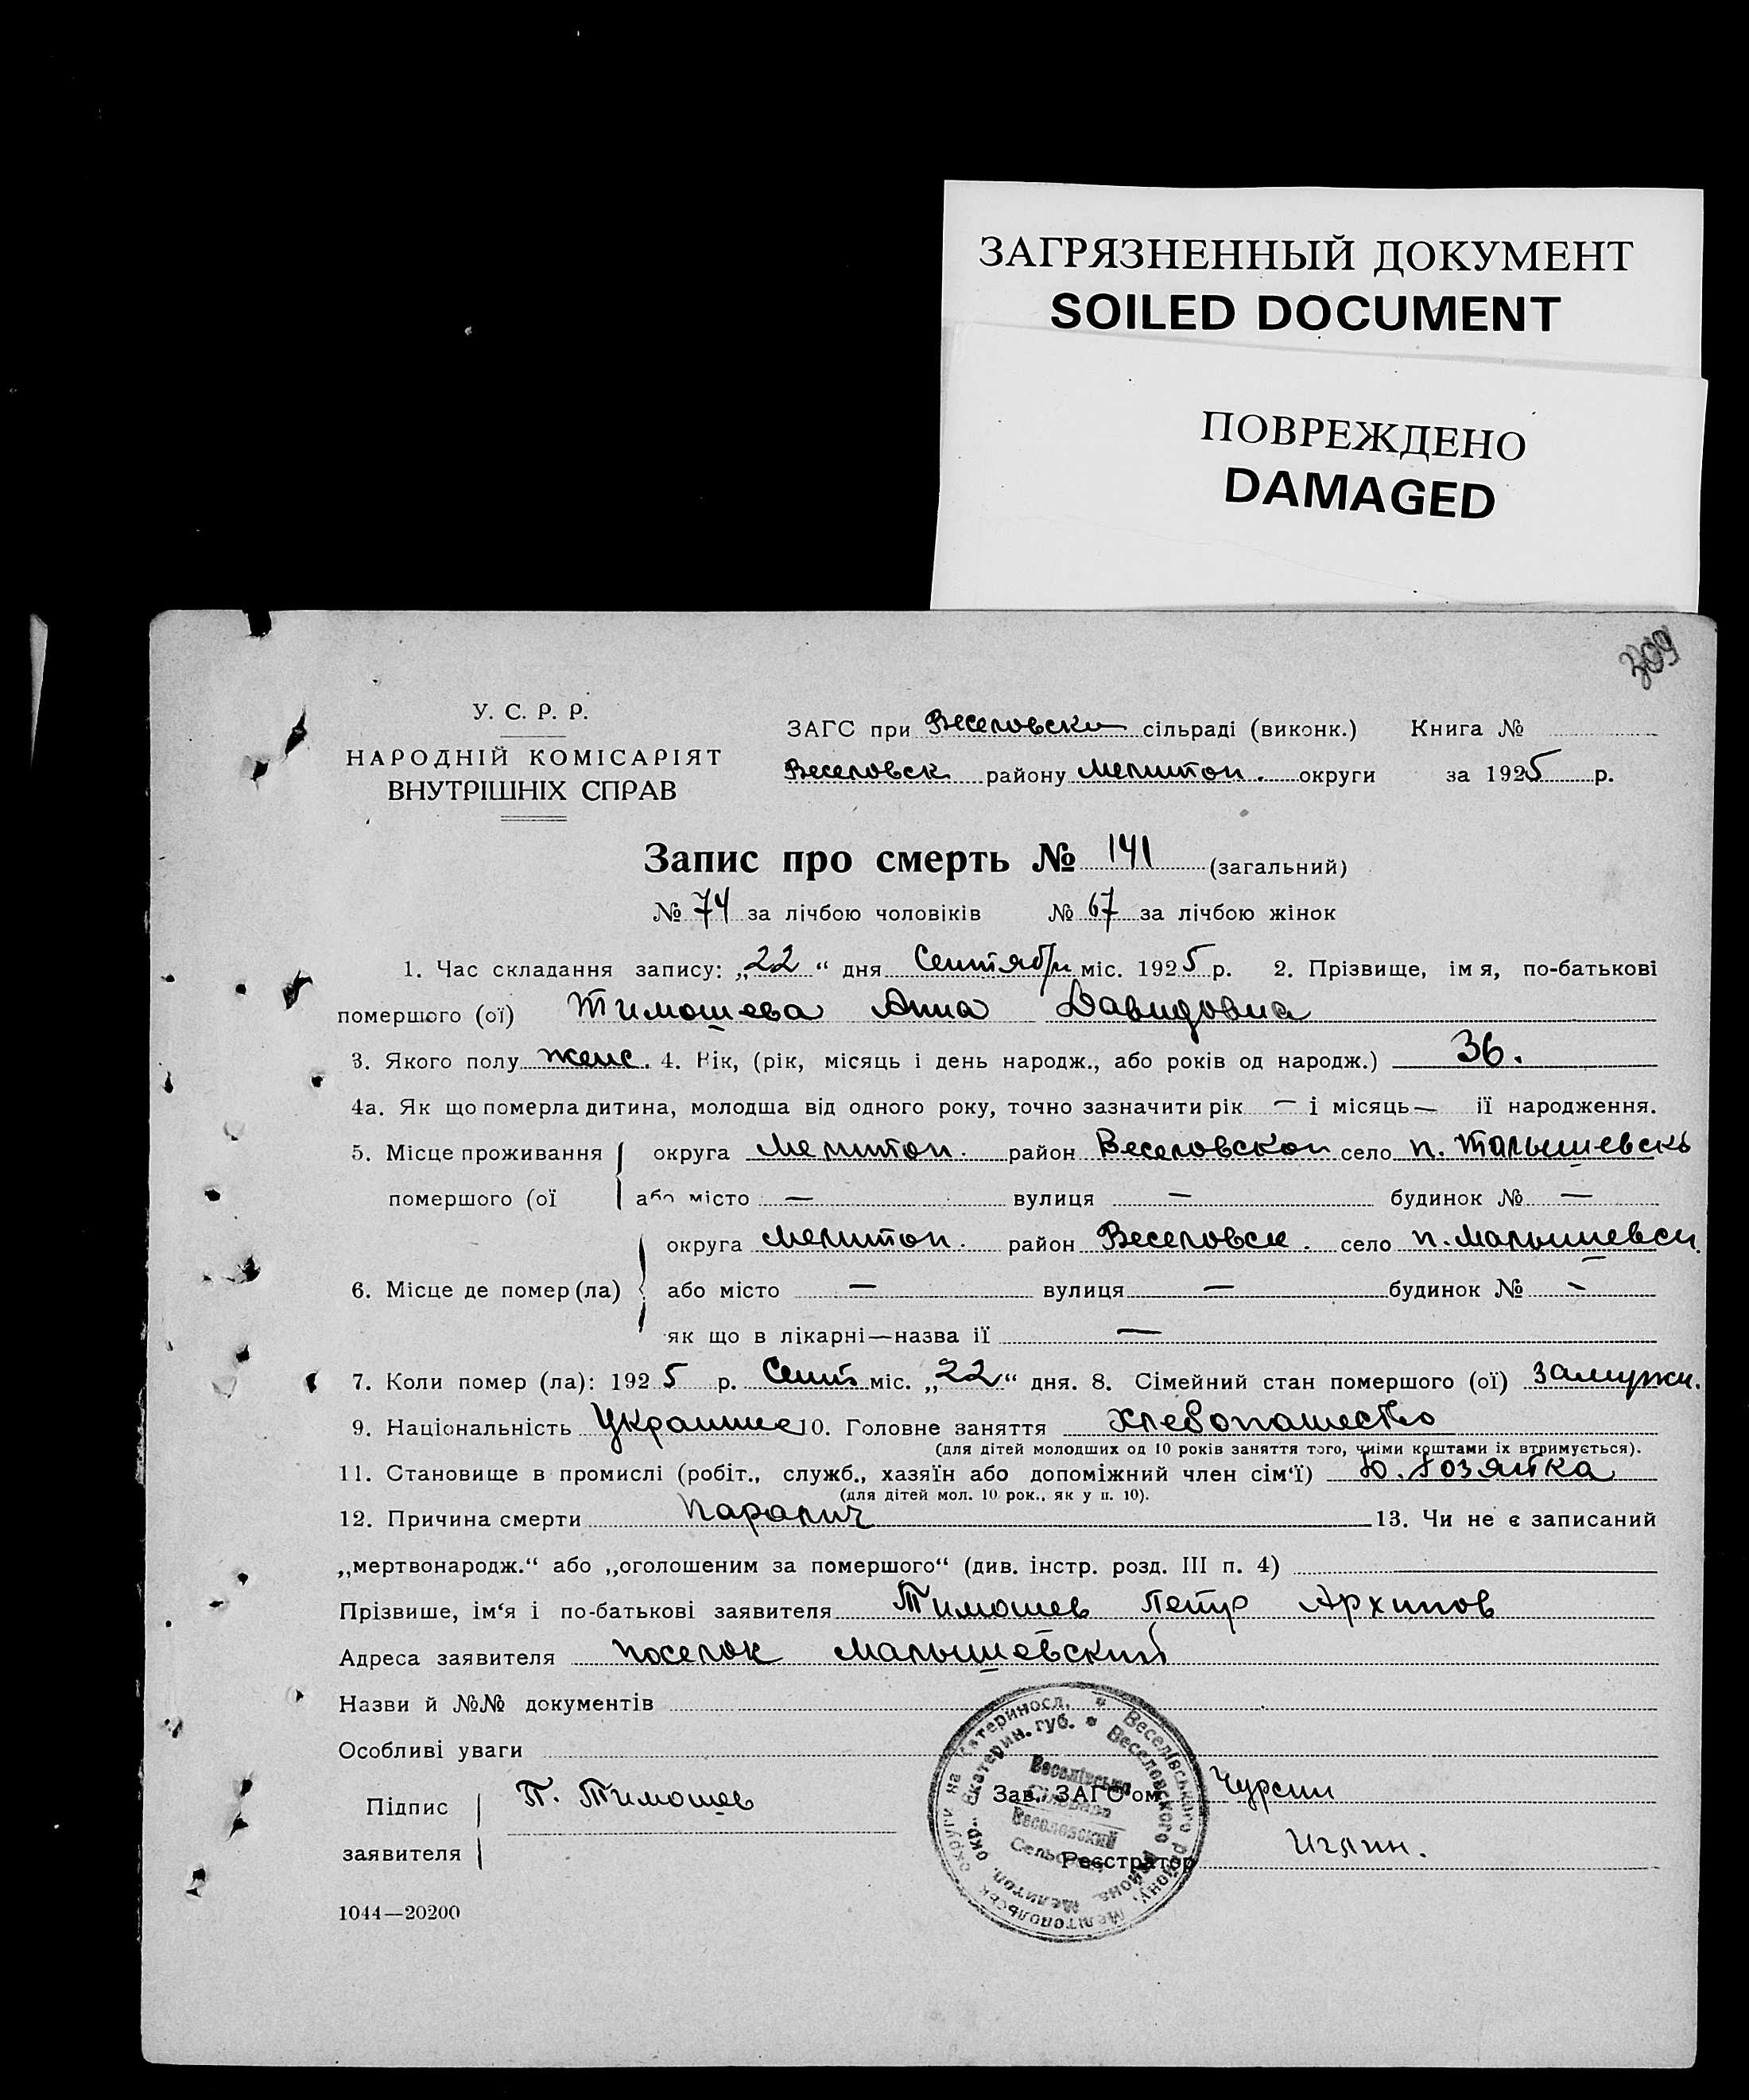 ЗАГРЯЗНЕННЫЙ ДОКУМЕНТ
SOILED DOCUMENT
ПОВРЕЖДЕНО
DAMAGED
309
У. С. Р. Р.
НАРОДНІЙ КОМІСАРІЯТ
ВНУТРІШНІХ СПРАВ
ЗАГС при Веселовски сільраді (виконк.) Книга №
Веселовск району Мелитоп. округи за 1925 р.
Запис про смерть № 141 (загальний)
№ 74 за лічбою чоловіків № 67 за лічбою жінок
1. Час складання запису: „22“ дня Сентября міс. 1925 р. 2. Прізвище, імя, по-батькові
помершого (ої) Тимошева Анна Давидовна
3. Якого полу женс. 4. Вік, (рік, місяць і день народж., або років од народж.) 36.
4а. Як що померла дитина, молодша від одного року, точно зазначити рік — і місяць — її народження.
5. Місце проживання округа Мелитоп. район Веселовской село п. Малышевскь
помершого (ої або місто — вулиця — будинок № —
округа Мелитоп. район Веселовск. село п. Малышевск.
6. Місце де помер (ла) або місто — вулиця — будинок № —
як що в лікарні—назва її —
7. Коли помер (ла): 1925 р. Сент. міс. „22“ дня. 8. Сімейний стан помершого (ої) замужн.
9. Національність Украинце 10. Головне заняття Хлебопашество
(для дітей молодших од 10 років заняття того, чиїми коштами їх втримується).
11. Становище в промислі (робіт., служб., хазяїн або допоміжний член сім‘ї) хозяйка
(для дітей мол. 10 рок., як у п. 10).
12. Причина смерти Паралич 13. Чи не є записаний
„мертвонародж.“ або „оголошеним за помершого“ (див. інстр. розд. III п. 4)
Прізвише, ім‘я і по-батькові заявителя Тимошев Петр Архипов
Адреса заявителя поселок Малышевский
Назви й №№ документів
Особливі уваги
Підпис
заявителя
П. Тимошев
Зав. ЗАГС‘ом Чурсин
Реєстратор Иглин.
Веселівського Району, Мелітопольськ. округи на Катериносл.
Веселовского Района Мелитоп. окр., Екатерин. губ.
Веселівська
Сільрада
Веселовский
Сельсовет
1044—20200